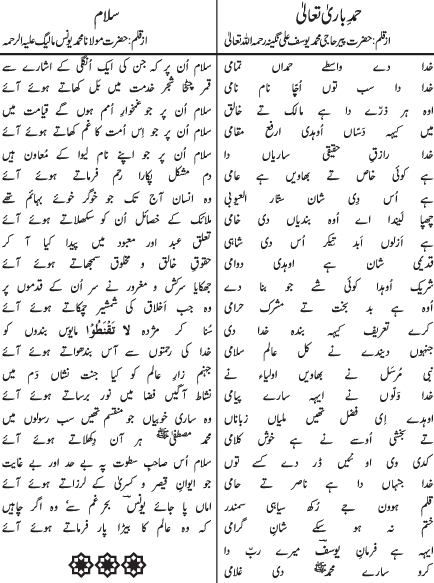 حمدِ باری تعالیٰ
از قلم: حضرت پیر حاجی محمد یوسف علی نگینہ رحمۃ اللہ تعالیٰ
خدا دے واسطے حمداں تمامی
خدا دا سب توں اُچّا نام نامی
اوہ ہر ذرّے دا ہے مالک تے خالق
میں کیہہ دسّاں اُوہدی ارفع مقامی
خدا رازق حقیقی ساریاں دا
ہے کوئی خاص تے بھاویں ہے عامی
ہے اُس دی شان ستّار العیوبی
چھپا لیندا اے اُوہ بندیاں دی خامی
ہے اَزلوں اَبد تیکر اُس دی شاہی
قدیمی شان ہے اوہدی دوامی
شریک اُوہدا کوئی شے جو بنا دے
اُوہ ہے بد بخت تے مشرک حرامی
کرے تعریف کیہہ بندہ خدا دی
جنہوں دیندے نے کل عالم سلامی
نبی مُرسَل نے بھاویں اولیاء نے
خدا وَلّوں نے ایہہ سارے پیامی
اوہدے اِی فضل تھیں ملیاں زباناں
تے بخشی اُوسے نے ہے خوش کلامی
کدی وی او نئیں ڈر دے کسے توں
خدا جنہاں دا ہے ناصر تے حامی
قلم ہوون جے رُکھ سیاہی سمندر
ختم نہ ہو سکے شانِ گرامی
ایہہ ہے فرمانِ یوسفؔ میرے ربّ دا
کرو سارے محمدؐ دی غلامی
سلام
از قلم: حضرت مولانا محمد یونس مالیگ علیہ الرحمہ
سلام اُن پر کہ جن کی ایک اُنگلی کے اشارے سے
قمر چیخا شجر خدمت میں بَل کھاتے ہوئے آئے
سلام اُن پر جو غمخوارِ اُمم ہوں گے قیامت میں
سلام اُن پر جو اِس اُمت کا غم کھاتے ہوئے آئے
سلام اُن پر جو اپنے نام لیوا کے معاون ہیں
دم مشکل پکارا رحم فرماتے ہوئے آئے
وہ انسان آج تک جو خوگر خوئے بہائم تھے
ملائک کے خصائل اُن کو سکھلاتے ہوئے آئے
تعلق عبد اور معبود میں پیدا کیا آ کر
حقوقِ خالق و مخلوق سمجھاتے ہوئے آئے
جھکایا سرکش و مغرور نے سر اُن کے قدموں پر
وہ جب اَخلاق کی شمشیر چمکاتے ہوئے آئے
سُنا کر مژدہ لَا تَقْنَطُوْا مایوس بندوں کو
خدا کی رحمتوں سے آس بندھواتے ہوئے آئے
جہنم زارِ عالم کو کیا جنت نشاں دَم میں
نشاط آگیں فضا میں نور برساتے ہوئے آئے
وہ ساری خوبیاں جو منقسم تھیں سب رسولوں میں
محمد مصطفیٰ ﷺ ہر آن دِکھلاتے ہوئے آئے
سلام اُس صاحبِ سطوت پہ بے حد اور بے غایت
جو ایوانِ قیصر و کسریٰ کے لرزاتے ہوئے آئے
اماں پا جائے یونسؔ بحرِ غم سے وہ اگر چاہیں
کہ وہ عالم کا بیڑا پار فرماتے ہوئے آئے